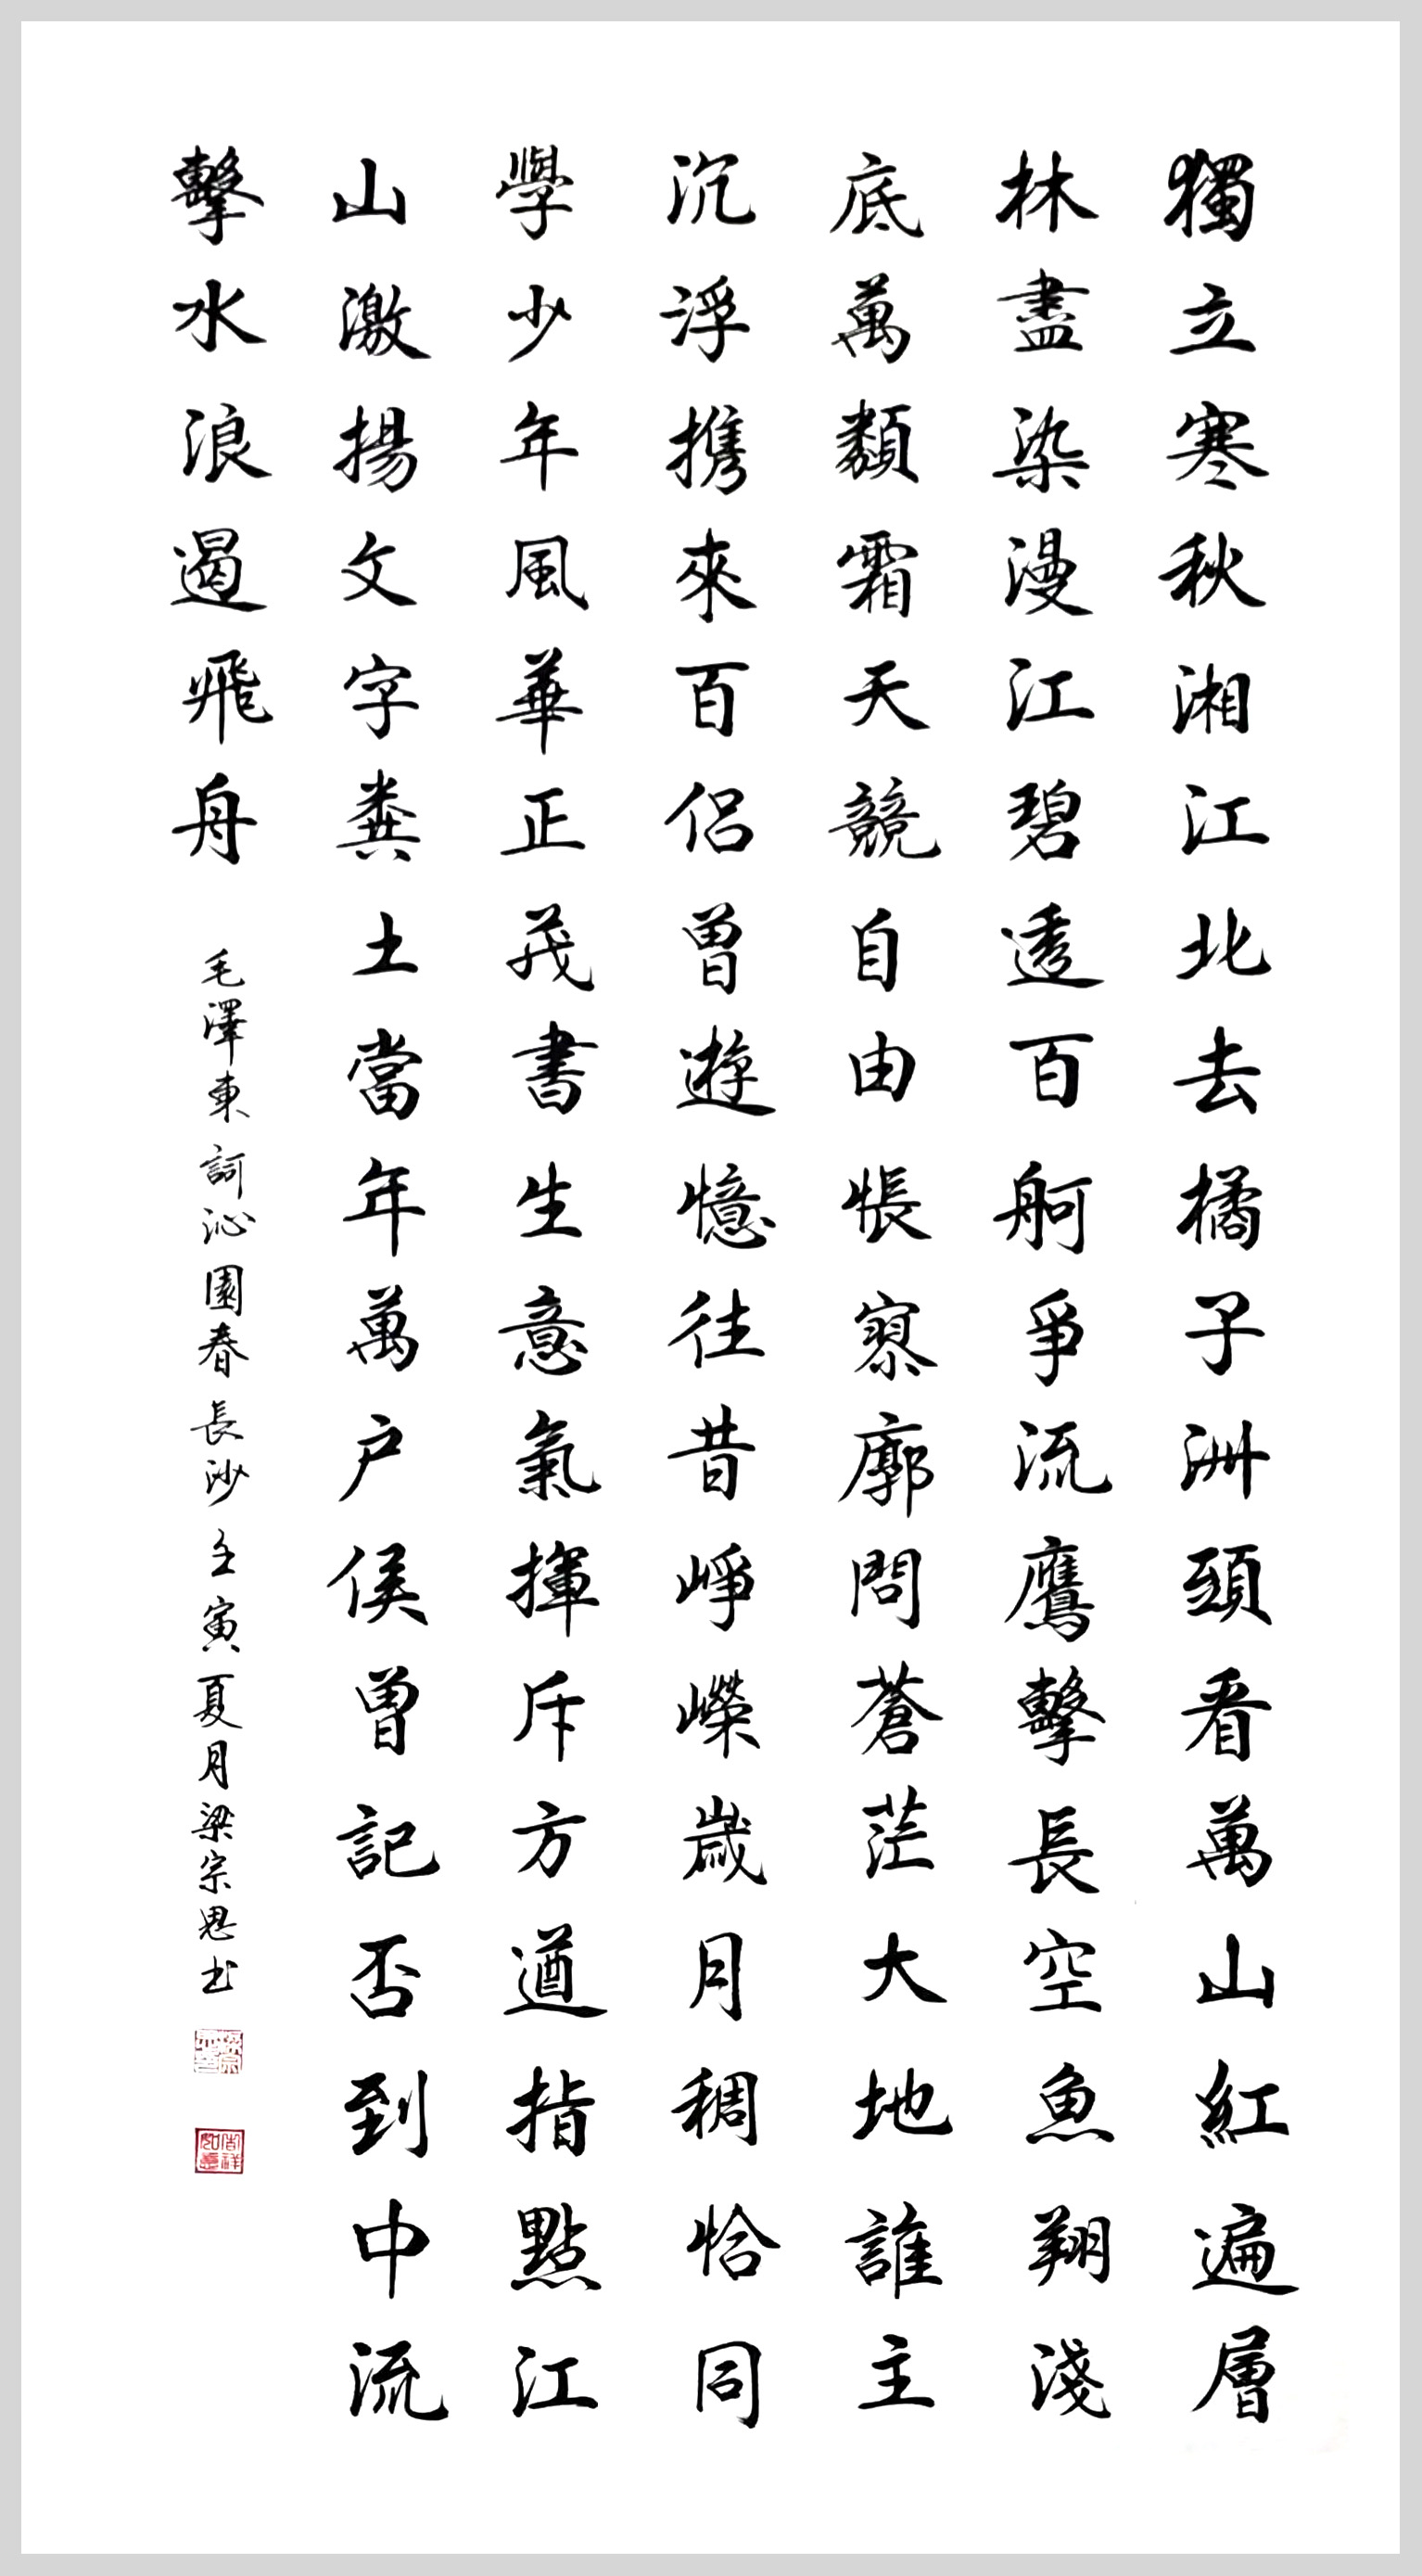 獨立寒秋湘江北去橘子洲頭看萬山紅遍層
林盡染漫江碧透百舸爭流鷹擊長空魚翔淺
底萬類霜天競自由悵寥廓問蒼茫大地誰主
沉浮携來百侣曾遊憶往昔崢嶸歲月稠恰同
學少年風華正茂書生意氣揮斥方遒指點江
山激揚文字糞土當年萬户侯曾記否到中流
擊水浪遏飛舟
毛澤東詞沁園春長沙壬寅夏月梁宗恩书
吉祥如意